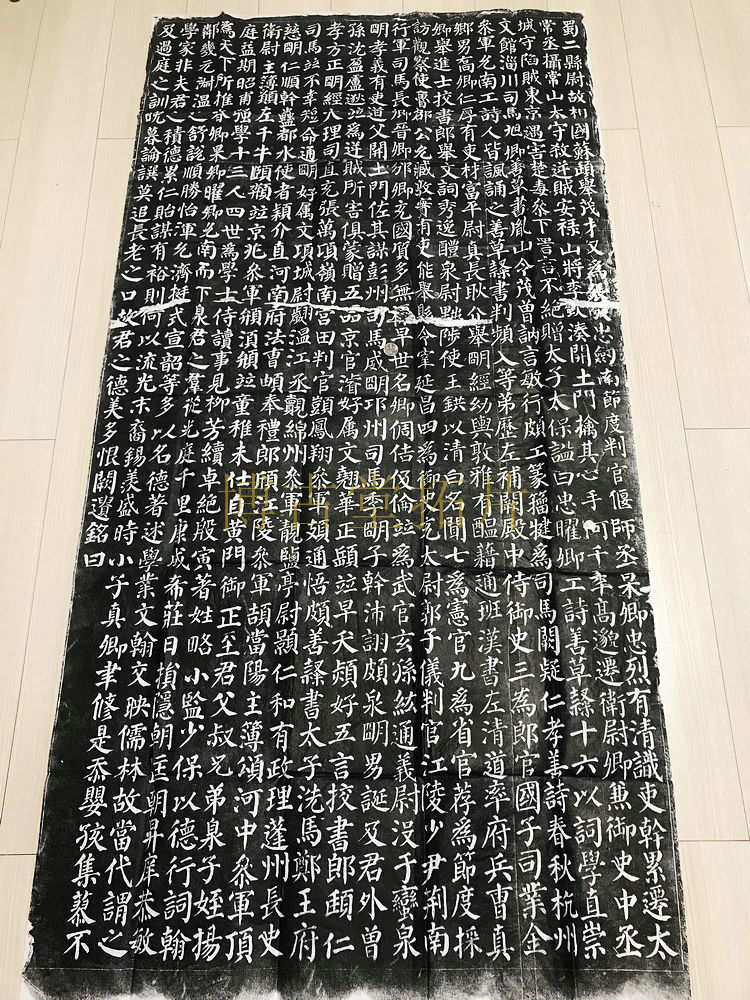 蜀二縣尉故相國蘇頲舉茂才又爲張敬忠劒南節度判官偃師丞杲卿忠烈有清識吏幹累遷太
常丞攝常山太守殺逆賊安祿山將李欽湊開土門擒其心手何千年高邈遷衛尉卿兼御史中丞
城守陷賊東京遇害楚毒叅下詈言不絶贈太子太保謚曰忠曜卿工詩善草隸十六以詞學直崇
文館淄川司馬旭卿善草書胤山令茂曾訥言敏行頗工篆籀犍爲司馬闕疑仁孝善詩春秋杭州
叅軍允南工詩人皆諷誦之善草隸書判頻入等第歷左補闕殿中侍御史三爲郎官國子司業金
鄉男喬卿仁厚有吏材富平尉真長耿介舉明經幼輿敦雅有醞藉通班漢書左清道率府兵曹真
卿舉進士挍書郎舉文詞秀逸醴泉尉黜陟使王鉷以清白名聞七爲憲官九爲省官荐爲節度採
訪觀察使魯郡公允臧敦實有吏能舉縣令宰延昌四爲御史充太尉郭子儀判官江陵少尹荆南
行軍司馬長卿晉卿邠卿充國質多無祿早世名卿倜佶伋倫竝爲武官玄孫紘通義尉没于蠻泉
明孝義有吏道父開土門佐其謀彭州司馬威明邛州司馬季明子幹沛詡頗泉明男誕及君外曾
孫沈盈盧逖竝爲逆賊所害俱蒙贈五品京官濬好属文翹華正頤竝早夭熲好五言挍書郎頲仁
孝方正明經大理司直充張萬頃嶺南營田判官顗鳳翔叅軍頍通悟頗善隸書太子洗馬鄭王府
司馬竝不幸短命通明好属文項城尉翽温江丞覿綿州叅軍靚鹽亭尉顥仁和有政理蓬州長史
慈明仁順幹蠱都水使者穎介直河南府法曹頔奉禮郎頎江陵叅軍頡當陽主簿頌河中叅軍頂
衛尉主簿願左千牛頤頫竝京兆叅軍須頍竝童稚未仕自黄門御正至君父叔兄弟泉子姪揚
庭益期昭甫强學十三人四世爲學士侍讀事見柳芳續卓絶殷寅著姓略小監少保以德行詞翰
爲天下所推春卿杲卿曜卿允南而下泉君之羣從光庭千里康成希莊日損隱朝匡朝昇庠恭敏
鄰幾元淑温之舒說順勝怡渾允濟挺式宣韶等多以名德著述學業文翰交映儒林故當代謂之
學家非夫君之積德累仁貽謀有裕則何以流光末裔錫羨盛時小子真卿聿修是忝嬰孩集蓼不
及過庭之訓晚暮論譔莫追長老之口故君之德美多恨闕遺銘曰
博古堂拓片